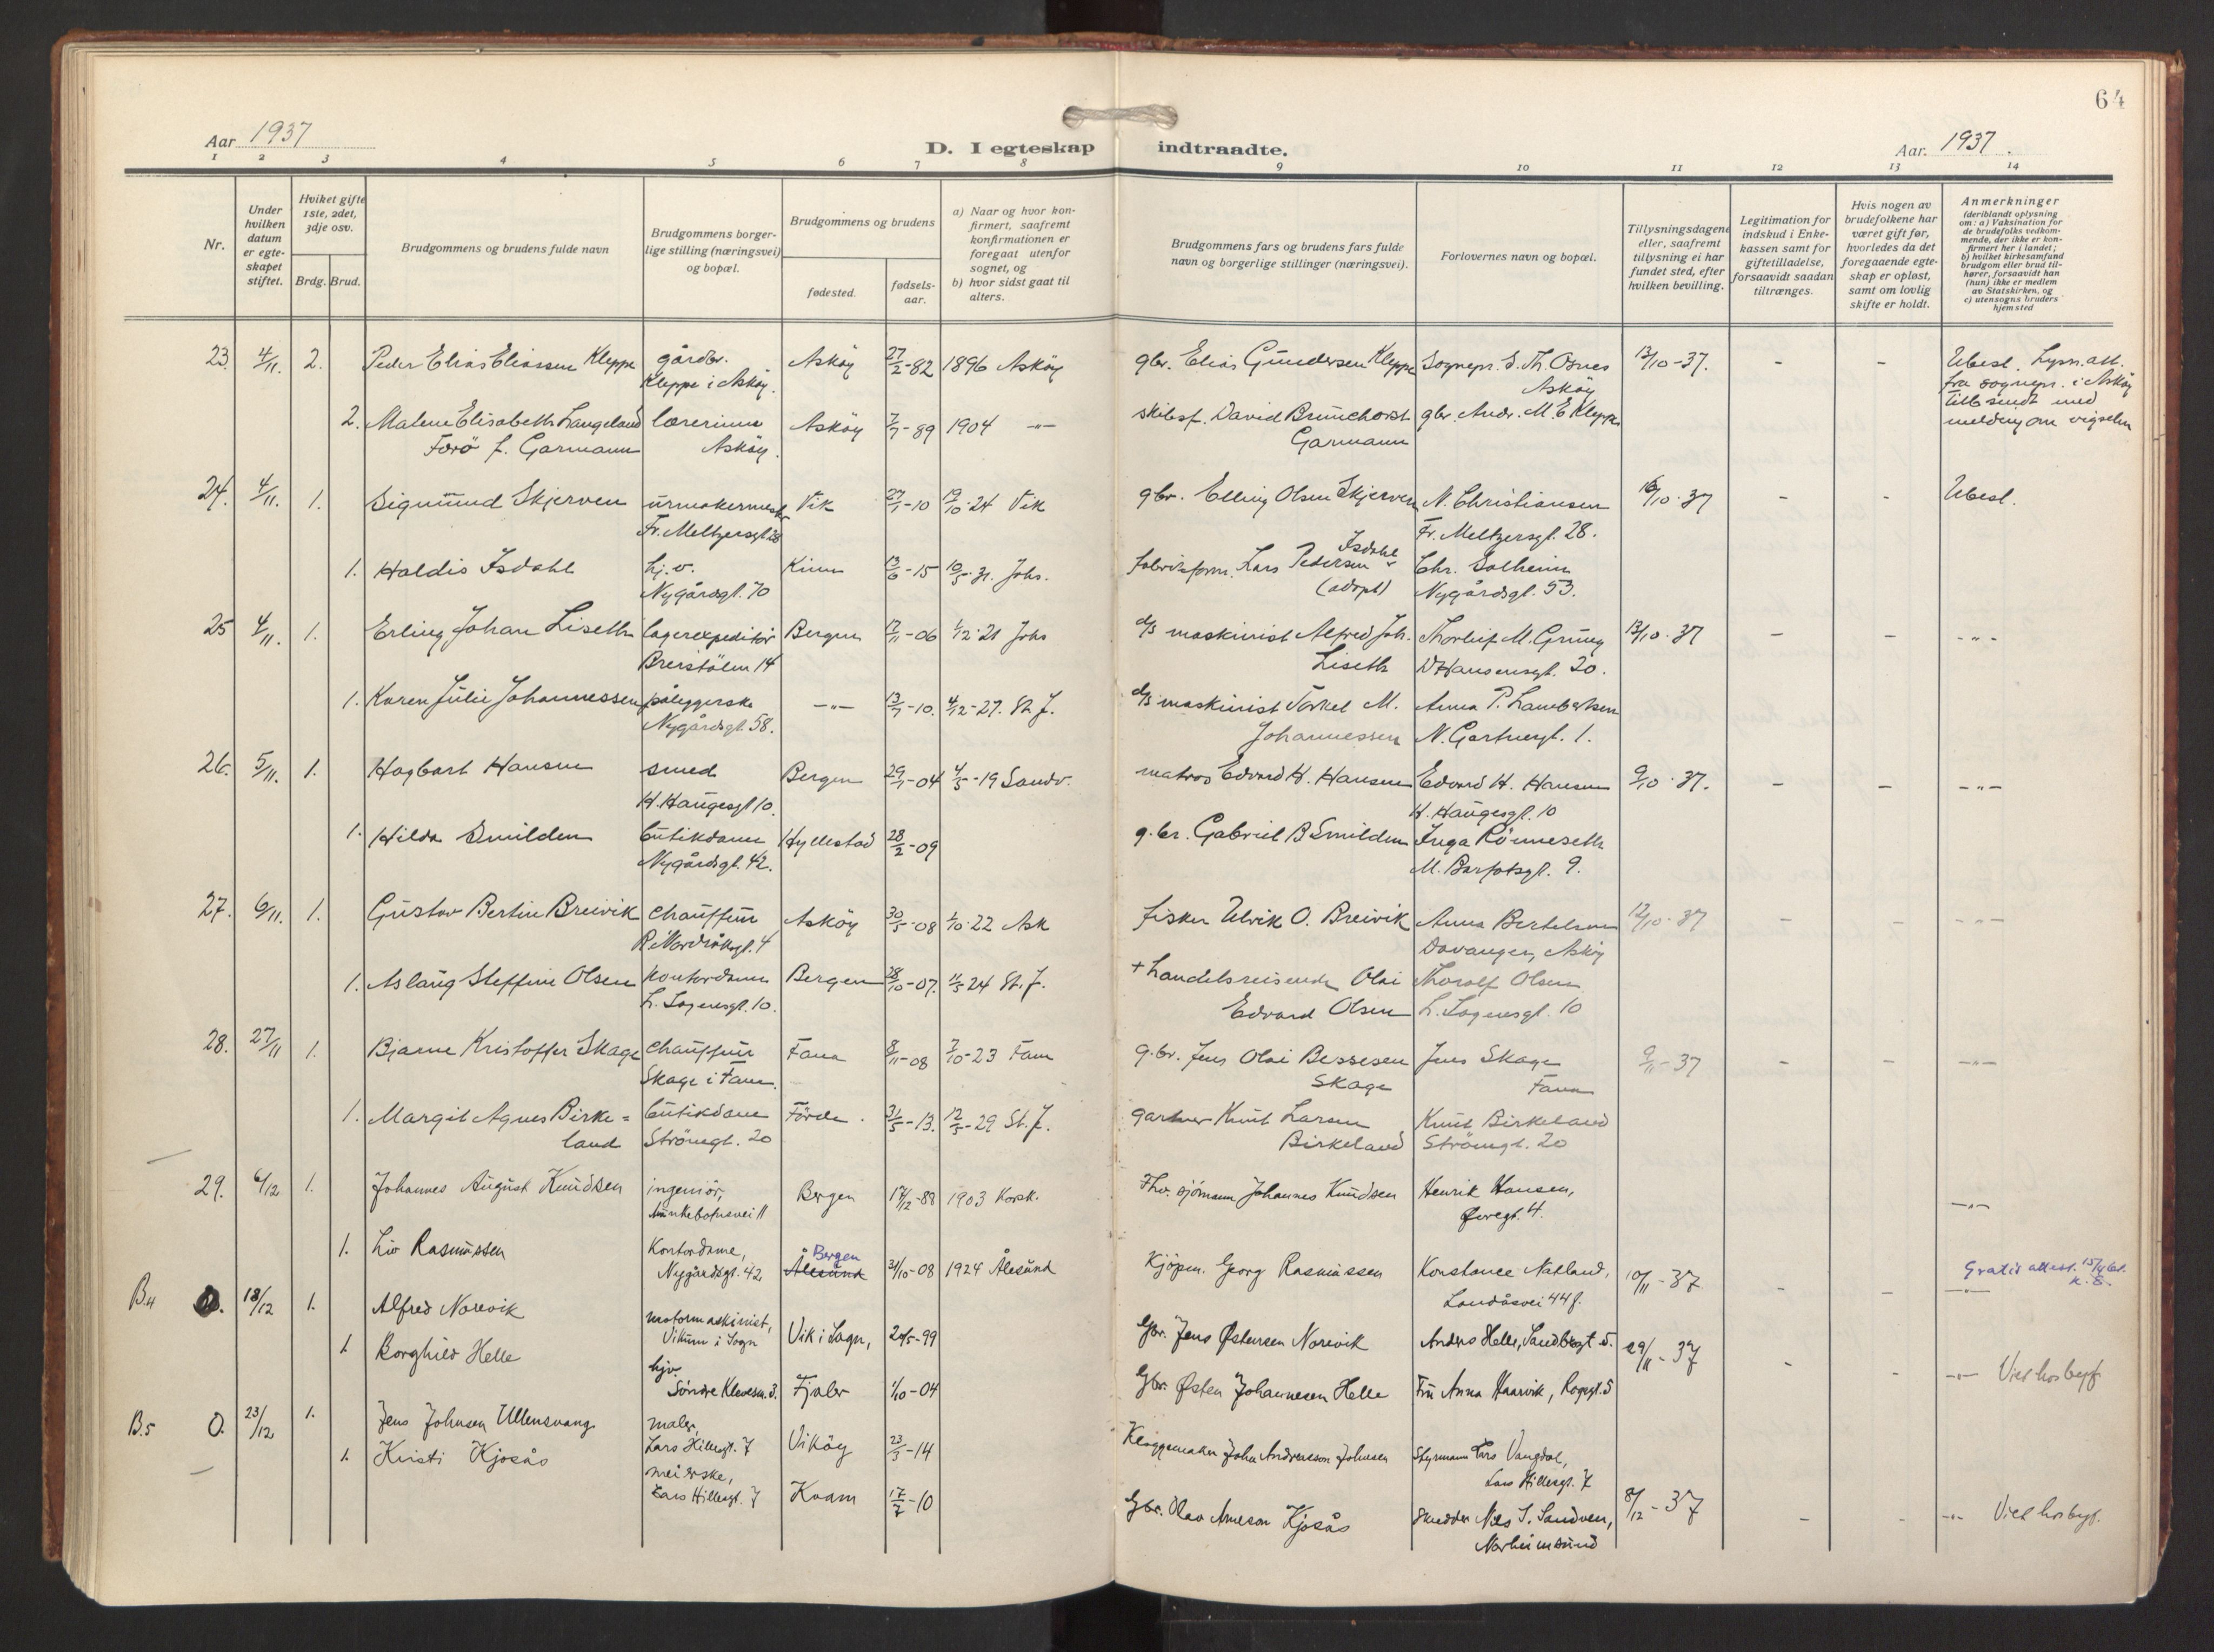 64
Aar 1937
D. I egteskap indtraadte.
Aar. 1937.
1 2 3 4 5 6 7 8 9 10 11 12 13 14
Nr.
Under hvilken datum er egteskapet stiftet.
Hviket gifte 1ste, 2det, 3dje osv.
Brdg. Brud.
Brudgommens og brudens fulde navn
Brudgommens borgerlige stilling (næringsvei) og bopæl.
Brudgommens og brudens
fødested.
fødselsaar.
a) Naar og hvor konfirmert, saafremt konfirmationen er foregaat utenfor sognet, og
b) hvor sidst gaat til alters.
Brudgommens fars og brudens fars fulde navn og borgerlige stillinger (næringsvei).
Forlovernes navn og bopæl.
Tillysningsdagene eller, saafremt tillysning ei har fundet sted, efter hvilken bevilling.
Legitimation for indskud i Enkekassen samt for giftetilladelse, forsaavidt saadan tiltrænges.
Hvis nogen av brudefolkene har været gift før, hvorledes da det foregaaende egteskap er opløst, samt om lovlig skifte er holdt.
Anmerkninger
(deriblandt oplysning om: a) Vaksination for de brudefolks vedkommende, der ikke er konfirmert her i landet; b) hvilket kirkesamfund brudgom eller brud tilhører, forsaavidt han (hun) ikke er medlem av Statskirken, og c) utensogns bruders hjemsted
23. 4/11. 2. Peder Elias Eliassen Kleppe gårdbr. Askøy 27/2-82 1896 Askøy gbr. Elias Gundersen Kleppe Sognepr. S. Th. Osnes 13/10-37. - - Ubesl. Lysn.att.
Kleppe i Askøy. Askøy fra sognepr. i Askøy
2. Malene Elisabeth Langeland lærerinne Askøy 7/7-89 1904 -"- skibsf. David Brunchorst gbr. Andr. M. E Kleppe tilbsendt med
Farø f. Garmann Askøy. Garmann melding om vigselen
24. 4/11. 1. Sigmund Skjerven urmakermester Vik 27/1-10 19/10-24 Vik gbr. Elling Olsen Skjerven N. Christiansen 16/10-37 - - Ubesl.
Fr. Meltzersgt 28 Fr. Meltzersgt. 28.
1. Haldis Isdahl hj.v. Kinn 13/6-15 10/5-31. Johs. fabrikform. Lars Pedersen Isdahl Chr. Solheim
Nygårdsgt. 70 (adopt) Nygårdsgt. 53.
25 4/11. 1. Erling Johan Liseth lagerexpeditør Bergen 17/11-06 4/12-21 Johs d/s maskinist Alfred Joh. Thorleif M. Grung 13/10-37 - - -"-
Breistølen 14 Liseth DHansensgt. 20.
1. Karen Julie Johannessen påleggerske -"- 13/7-10. 4/12-27. St. J. d/s maskinist Torkel M. Anna P. Lambertsen
Nygårdsgt. 58. Johannessen N. Gartnergt. 1.
26. 5/11. 1. Hagbart Hansen smed Bergen 29/1-04 4/5-19 Sandv. matros Edvard H. Hansen Edvard H. Hansen 9/10-37. - - -"-
H. Haugesgt 10. H. Haugesgt. 10
1. Hilda Smilden butikdame Hyllestad 28/2-09 g.br. Gabriel B Smilden Inga Rönneseth
Nygårdsgt. 42. M. Barfotsgt. 9.
27. 6/11. 1. Gustav Bertin Breivik chauffeur Askøy 30/5-08 1/10-22 Ask fisker Ulrik O. Breivik Anna Bertelsen 12/10-37 - - -"-
R. Nordråksgt. 4 Davanger, Askøy
1. Aslaug Steffine Olsen kontordame Bergen 28/10-07. 11/5 24 St. J. + handelsreisende Olai Thorolf Olsen
L. Sagensgt. 10. Edvard Olsen L. Sagensgt. 10
28. 27/11 1. Bjarne Kristoffer Skage chauffeur Fana 8/11-08 7/10-23 Fana g.br. Jens Olai Bessesen Jens Skage 9/11-37 - - -"-
Skage i Fana. Skage Fana
1. Margit Agnes Birke= butikdame Förde. 31/5-13. 12/5-29 St. J. gartner Knut Larsen Knut Birkeland
land Strömgt. 20 Birkeland Strömgt. 20
29. 6/12 1. Johannes August Knudsen ingeniør, Bergen 17/12-88 1903 Korsk. Fhv. sjömann Johannes Knudsen Henrik Hansen, -"-
Munkebotnsvei 11 Øvregt. 4.
1. Liv Rasmussen Kontordame, Bergen
Nygårdsgt. 42 Ålesund 31/10-08 1924 Ålesund Kjöpm. Georg Rasmussen Konstance Natland, 10/11-37 - - -"-
Landåsvei 44 f. Gratis attest. 15/4 61. K. B.
B.4 0. 18/12 1. Alfred Norevik motormaskinist, Vik i Sogn, 20/5-99 Gbr. Jens Østensen Norevik Anders Helle, Sandbrgt 5. 29/11-37 - - -"- Viet hos byf.
Vikum i Sogn
1 Borghild Helle hjv. Fjaler 1/10-04 Gbr. Østen Johannesen Helle Frü Anna Haarvik, Rogagt. 5
Söndre Klevesm. 3.
B.5 0. 23/12 1. Jens Johnsen Ullensvang maler, Vikøy 23/3-14 John Andreasson Johnsen Styrmann Lars Vangdal,
Lars Hillesgt. 7 Lars Hillesgt. 7
1. Kristi Kjosås meierske, Kvam 17/7-10 Gbr. Olav Arneson Kjosås Skredder Nils T. Sandven, 8/12-37 - - -"- Viet hos byf.
Lars Hillesgt. 7 Norheimsund